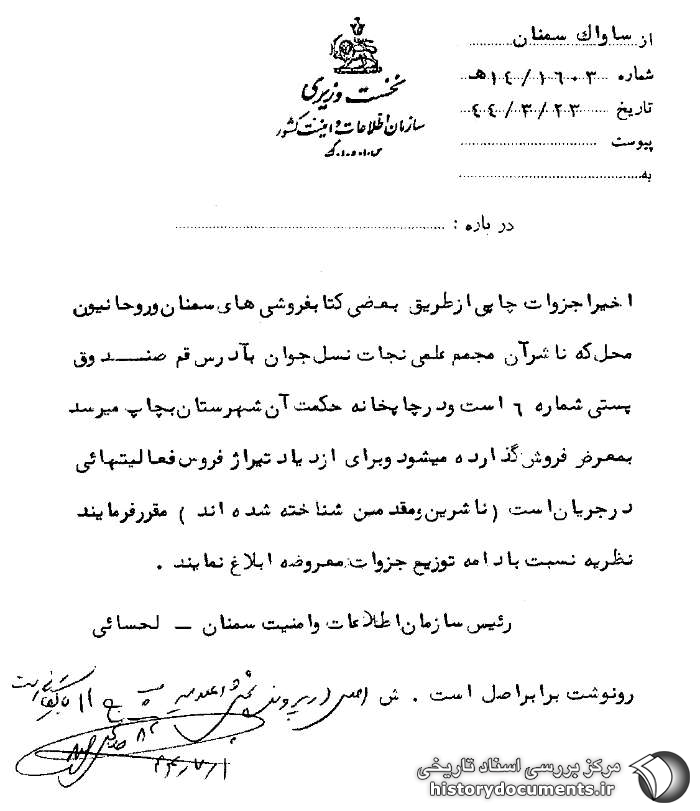 از ساواك سمنان
شماره ۱۶۰۳/۱۴ﻫ
تاریخ ۴۴/۳/۲۳
پیوست
به
نخست وزیری
سازمان اطلاعات و امنیت کشور
س.ا.و.ا.ک
درباره :
اخیرا جزوات چاپی ازطریق بعضی کتابفروشی های سمنان وروحانیون
محل که ناشرآن مجمع علمی نجات نسل جوان بآدرس قم صندوق
پستی شماره ٦ است ودرچاپخانه حکمت آن شهرستان بچاپ میرسد
بمعرض فروش گذارده میشود وبرای ازدیاد تیراژ فروس فعالیتهائی
درجریان است (ناشرین ومقدمسن شناخته شده اند ) مقررفرمایند
نظریه نسبت بادامه توزیع جزوات معروضه ابلاغ نمایند .
رئیس سازمان اطلاعات وامنیت سمنان ـ لحسائی
رونوشت برابراصل است . ش اصلی در پرونده
مرکز بررسی اسناد تاریخی
historydocuments.ir